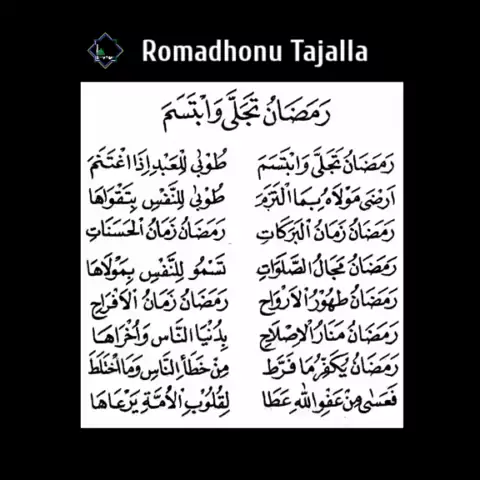 Romadhonu Tajalla
رَمَضَانُ تَجَلَّى وَابْتَسَمَ
رَمَضَانُ تَجَلَّى وَابْتَسَمَ طُوْبٰى لِلْعَبْدِ اِذَا اغْتَنَمَ
اَرْضٰى مَوْلَاهُ بِمَا الْتَزَمَ طُوْبٰى لِلنَّفْسِ بِتَقْوَاهَا
رَمَضَانُ زَمَانُ الْبَرَكَاتِ رَمَضَانُ زَمَانُ الْحَسَنَاتِ
رَمَضَانُ مَجَالُ الصَّلَوَاتِ تَسْمُو لِلنَّفْسِ بِمَوْلَاهَا
رَمَضَانُ طَهُوْرُ الْاَرْوَاحِ رَمَضَانُ زَمَانُ الْاَفْرَاحِ
رَمَضَانُ مَنَارُ الْاِصْلَاحِ بِدُنْيَا النَّاسِ وَاُخْرَاهَا
رَمَضَانُ يُكَفِّرُ مَا فَرَّطَ مِنْ خَطَأِ النَّاسِ وَمَا اخْتَلَطَ
فَعَسٰى مِنْ عَفْوِ اللهِ عَطَا لِقُلُوْبِ الْاُمَّةِ يَرْعَاهَا